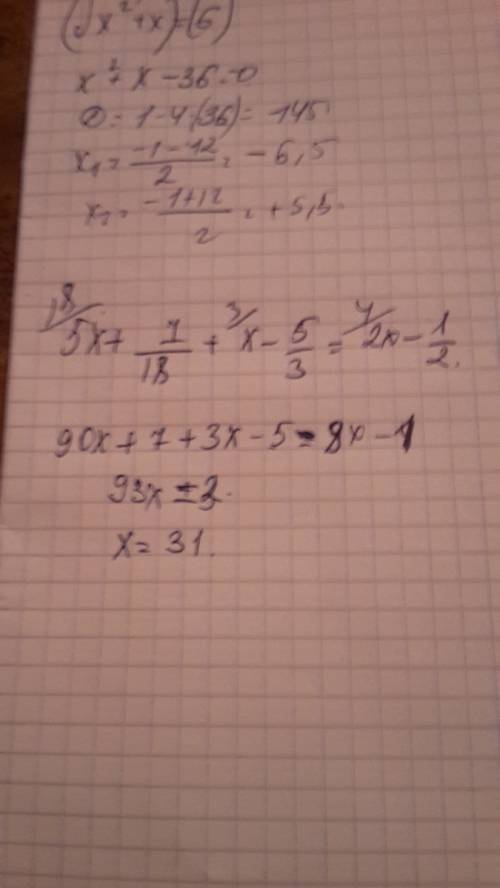 (√x²+x)=(6)
x²+x-36=0
D=1-4·(36)=145
x₁=\frac{-1-12}{2}=-6,5
x₂=\frac{-1+12}{2}=+5,5.
18/ 5x+\frac{7}{18}+ 3/ x-\frac{5}{3}= 4/ 2x-\frac{1}{2}.
90x+7+3x-5=8x-1
93x=3.
x=31.